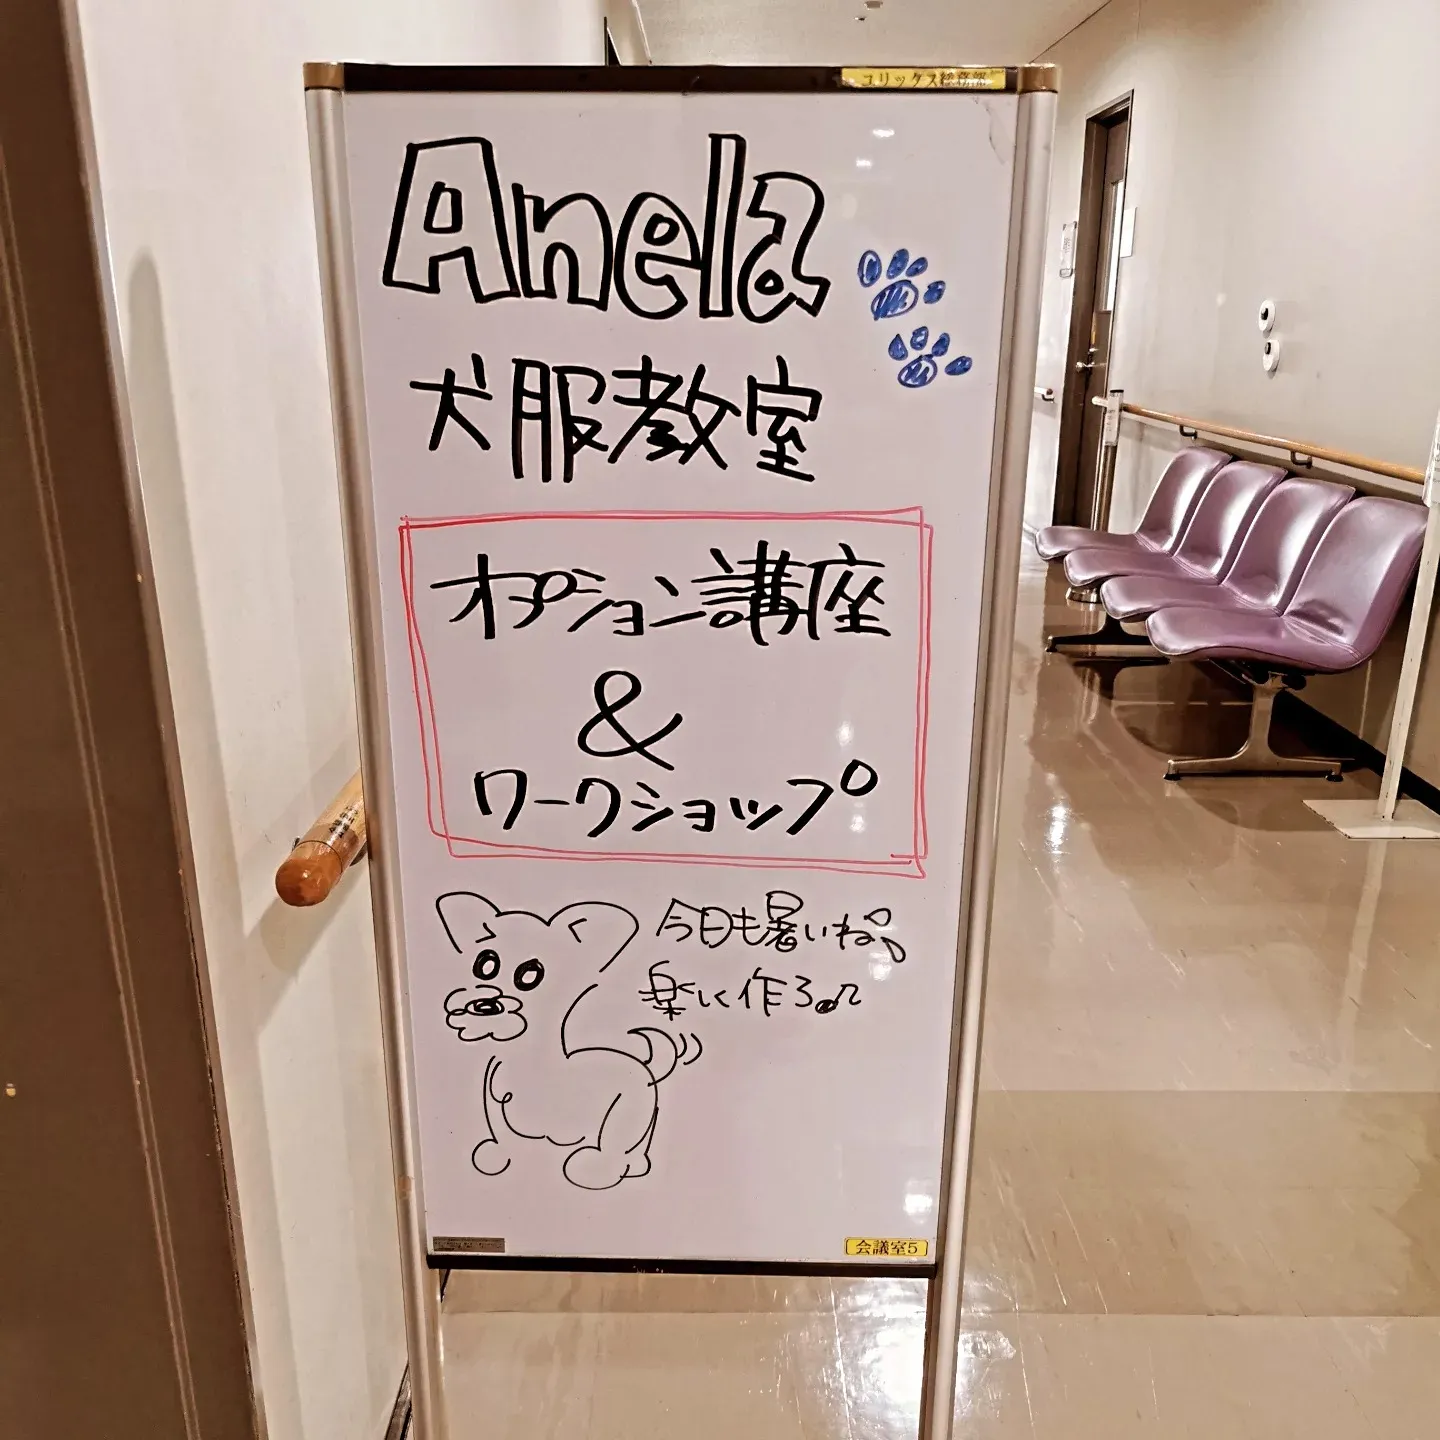 ユリックス総務部
Anela
犬服教室
オプション講座
&
ワークショップ
今日も暑いね。
楽しく作ろ♫
会議室5